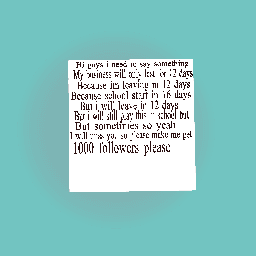 Hi guys i need to say something
My business will only last for 12 days
Because im leaving in 12 days
Because school start in 16 days
But i will leave in 12 days
But i will still play this in school but
But sometimes so yeah
I will miss you so please make me get
1000 followers please